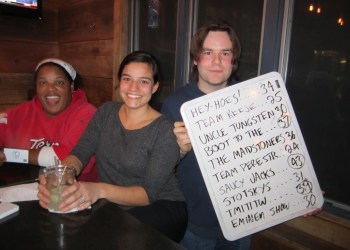 HEY-HOES! 34
TEAM REESE 25
UNCLE TUNGSTEN 30
BOOT TO THE ... 37
THE MAIDSTONERS 36
TEAM PERESTR.. 24
SAUCY JACKS ... 43
STOTSKYS ... 31
TMITTIW ... 39
EMINEM SHOW .. 30